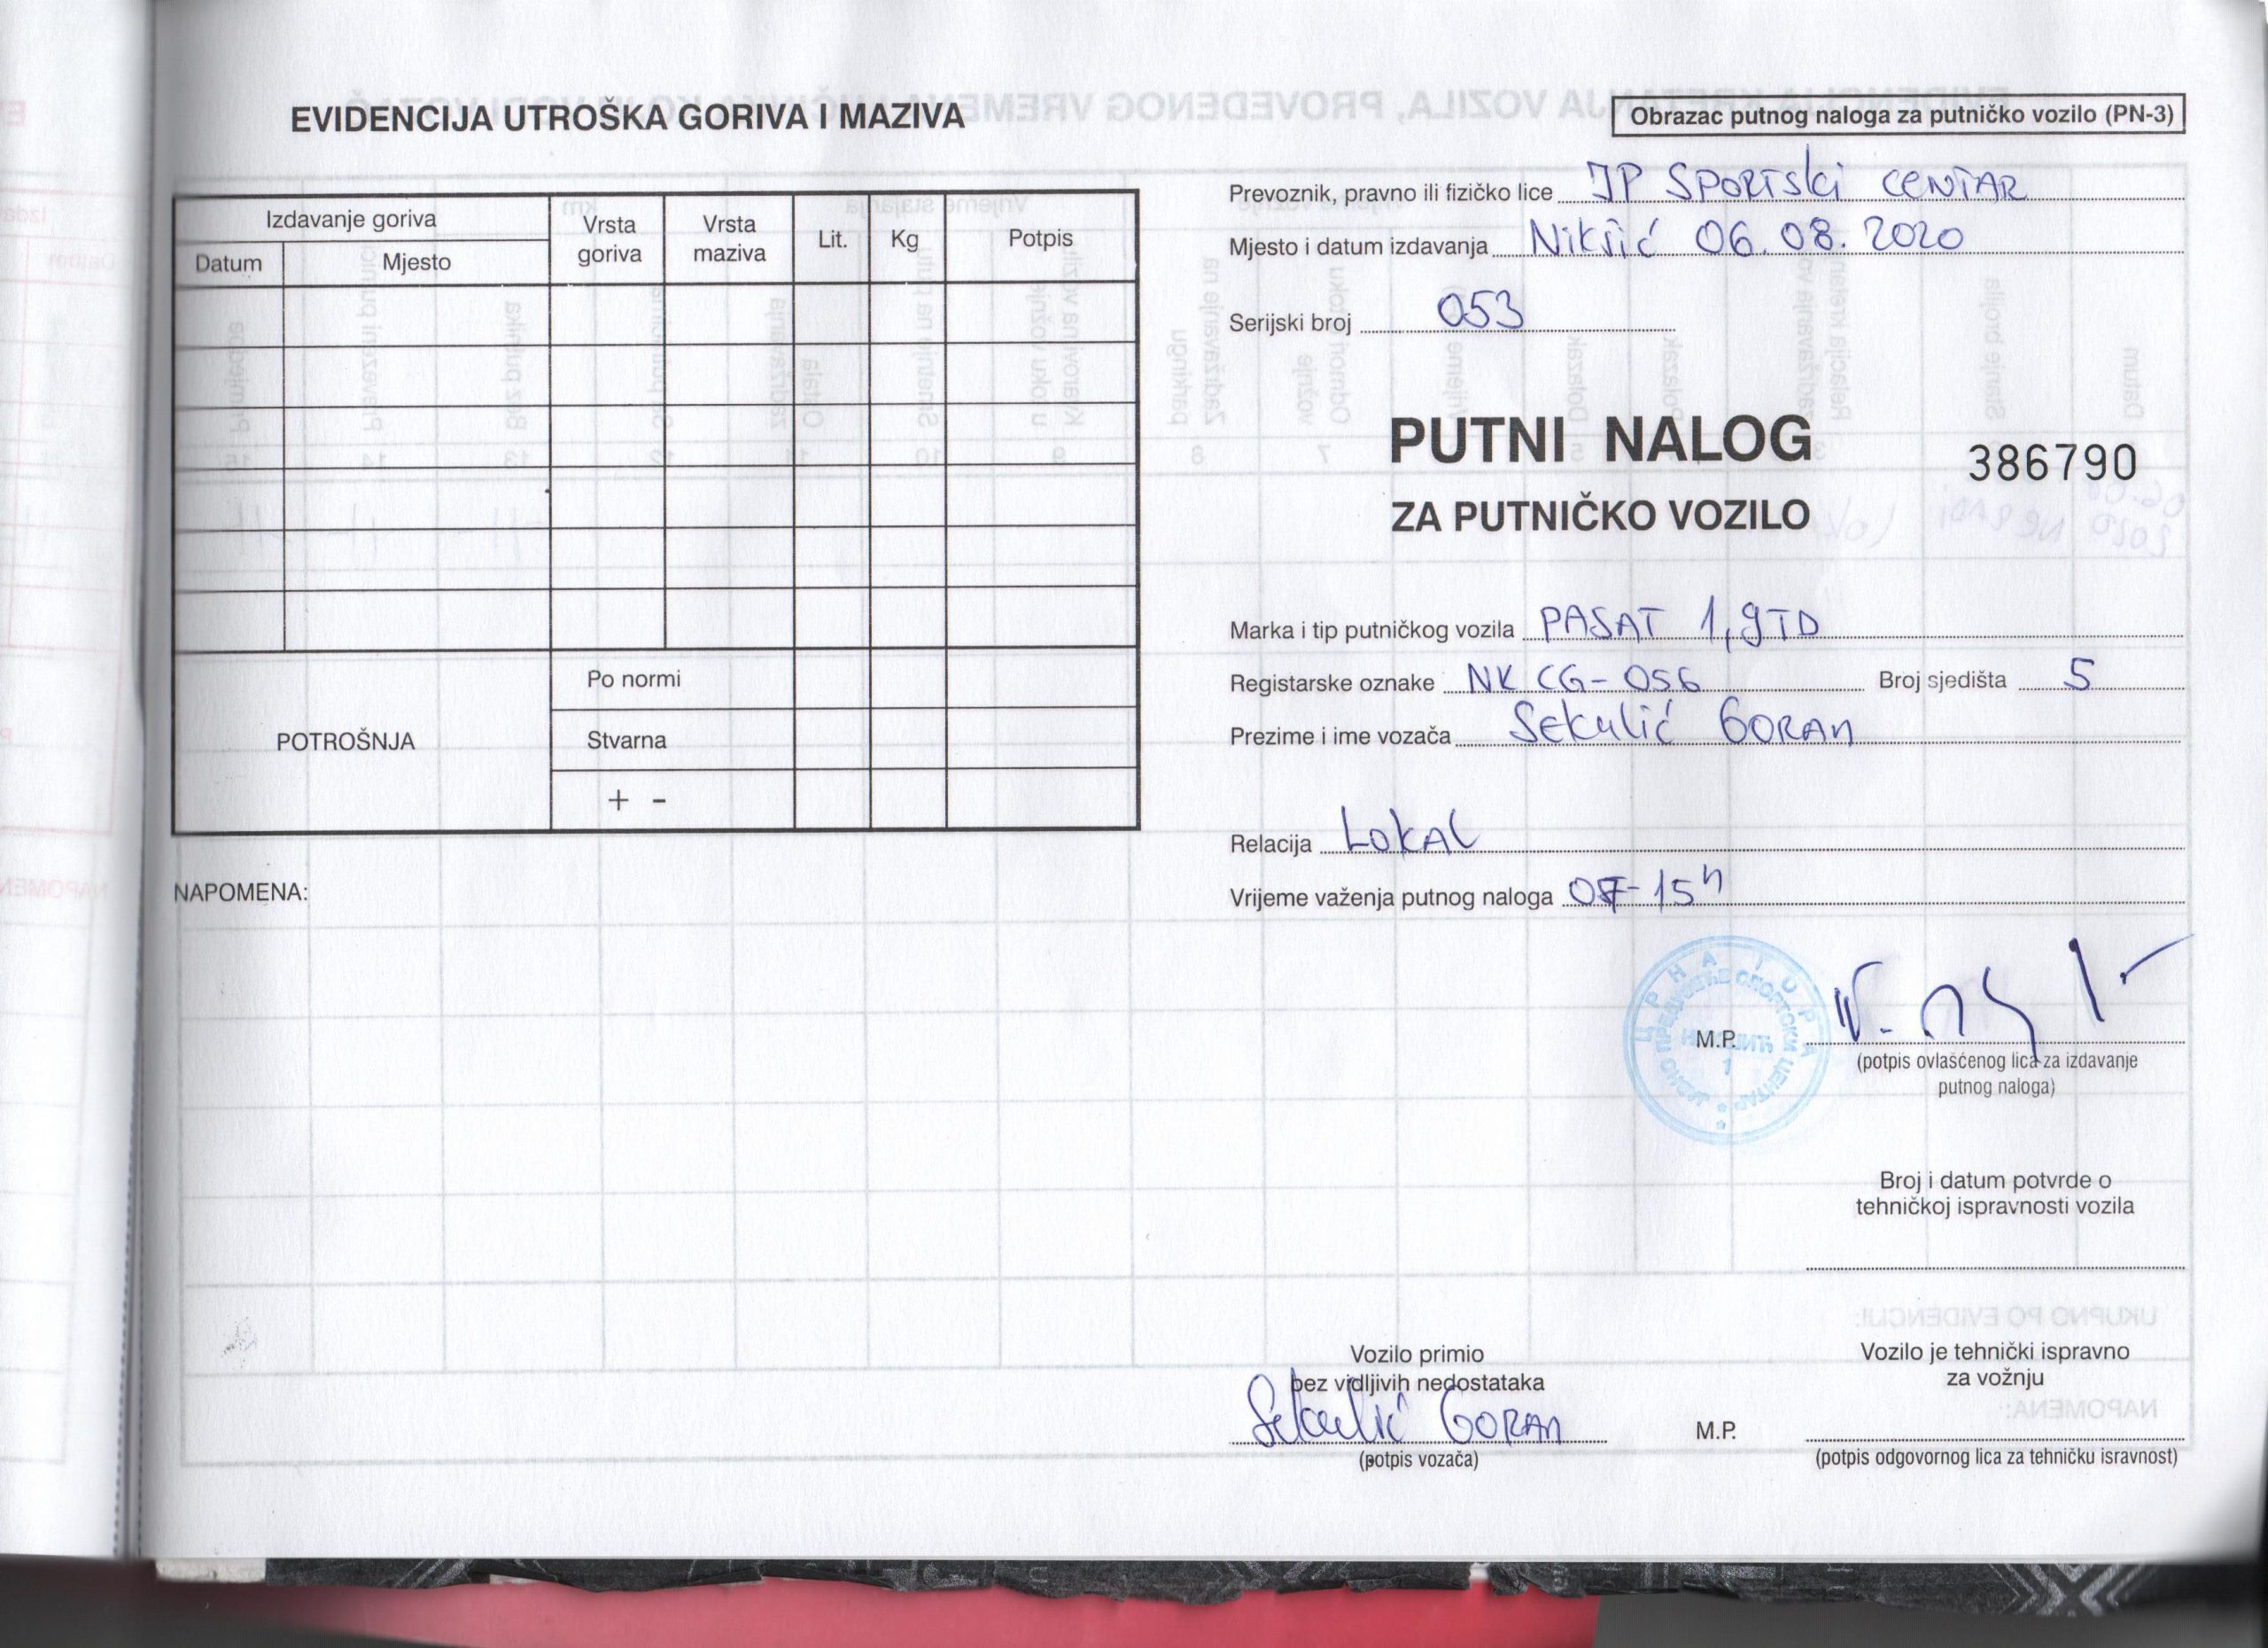 EVIDENCIJA UTROŠKA GORIVA I MAZIVA
Izdavanje goriva
Datum
Mjesto
Vrsta goriva
Vrsta maziva
Lit.
Kg
Potpis
POTROŠNJA
Po normi
Stvarna
+ -
NAPOMENA:
Obrazac putnog naloga za putničko vozilo (PN-3)
Prevoznik, pravno ili fizičko lice JP SPORTSki CENTAR
Mjesto i datum izdavanja Nikšić 06.08.2020
Serijski broj 053
PUTNI NALOG
386790
ZA PUTNIČKO VOZILO
Marka i tip putničkog vozila PASAT 1,9TD
Registarske oznake NK CG-056 Broj sjedišta 5
Prezime i ime vozača Sekulić GORAN
Relacija LOKAL
Vrijeme važenja putnog naloga 07-15h
ЦРНА ГОРА
ЈАВНО ПРЕДУЗЕЋЕ СПОРТСКИ ЦЕНТАР
1
M.P.
(potpis ovlašćenog lica za izdavanje
putnog naloga)
Broj i datum potvrde o
tehničkoj ispravnosti vozila
Vozilo primio
bez vidljivih nedostataka
Sekulić GORAN
(potpis vozača)
M.P.
Vozilo je tehnički ispravno
za vožnju
(potpis odgovornog lica za tehničku isravnost)